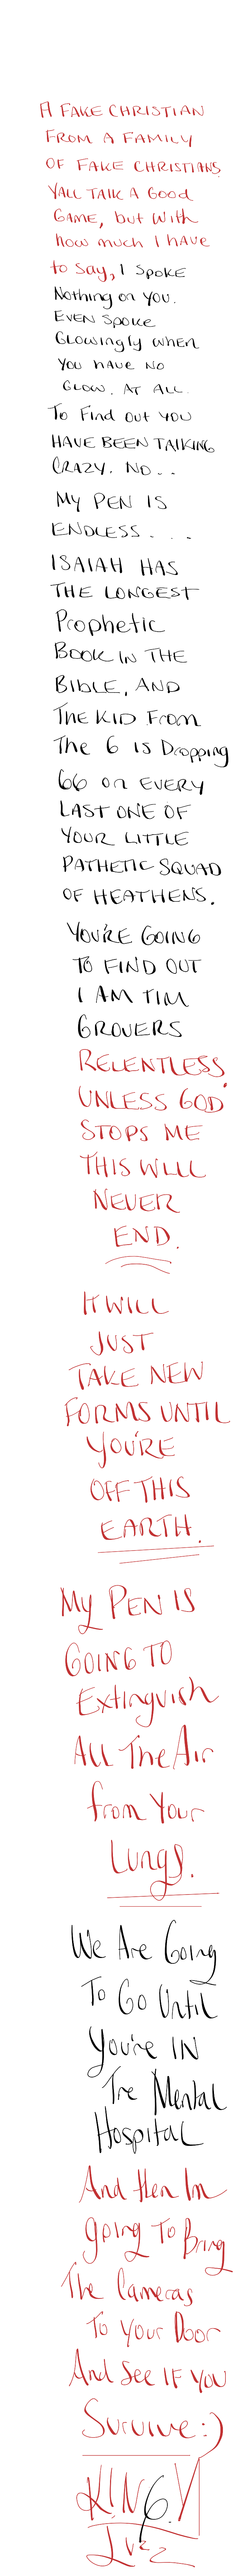 A FAKE CHRISTIAN
FROM A FAMILY
OF FAKE CHRISTIANS.
YALL TALK A GOOD
GAME, but with
how much I have
to say, I SPOKE
Nothing on YOU.
EVEN SPOKE
GLOWINGLY WHEN
YOU HAVE NO
GLOW. AT ALL.
To Find OUT YOU
HAVE BEEN TALKING
CRAZY. NO...
MY PEN IS
ENDLESS....
ISAIAH HAS
THE LONGEST
Prophetic
BOOK IN THE
BIBLE, AND
THE KID From
The 6 IS Dropping
66 on EVERY
LAST ONE OF
YOUR LITTLE
PATHETIC SQUAD
OF HEATHENS.
YOU'RE GOING
TO FIND OUT
I AM TIM
GROVERS
RELENTLESS.
UNLESS GOD
STOPS ME
THIS WILL
NEVER
END.
IT WILL
JUST
TAKE NEW
FORMS UNTIL
YOU'RE
OFF THIS
EARTH.
My PEN IS
GOING TO
Extinguish
All The Air
from Your
Lungs.
We Are Going
To Go Until
You're IN
The Mental
Hospital
And then Im
going To Bring
The Cameras
To Your Door
And See IF YOU
Survive :)
K!NG.V